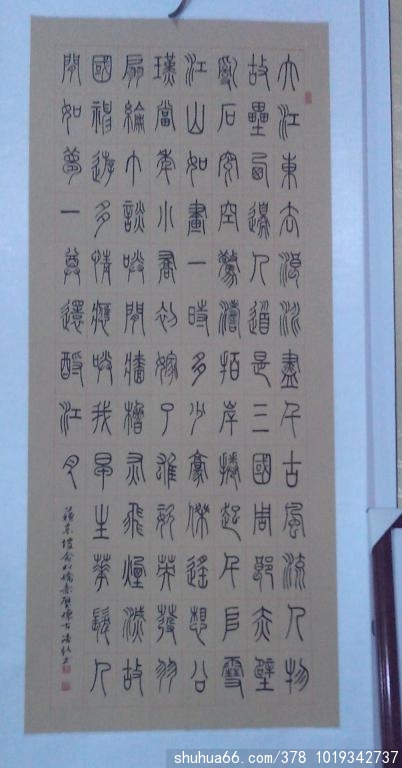 大江東去浪淘盡千古風流人物
故壘西邊人道是三國周郎赤壁
亂石穿空驚濤拍岸捲起千堆雪
江山如畫一時多少豪傑遙想公
瑾當年小喬初嫁了雄姿英發羽
扇綸巾談笑間牆櫓灰飛煙滅故
國神遊多情應笑我早生華髮人
間如夢一尊還酹江月
蘇東坡念奴嬌赤壁懷古
shuhua66.com/378 1019342737